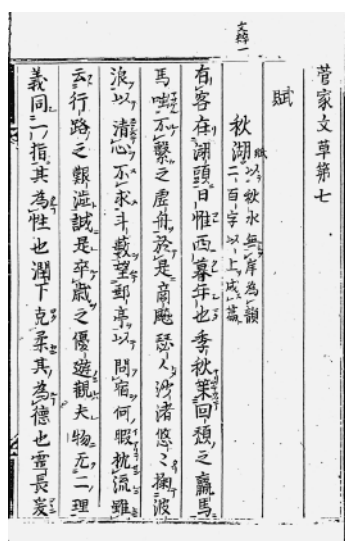 菅家文草第七
賦
秋湖賦 以秋水無岸為韻
二百字以上成篇
有客在湖頭日惟西暮年也季秋策回頽之羸馬
馬嗤不繫之虚舟於是商飈瑟人沙渚悠〻掬波
浪以清心不求斗藪望郵亭以問宿何暇枕流雖
云行路之艱澁誠是卒歳之優遊觀夫物无二理
義同一指其為性也潤下克柔其為德也霊長爰